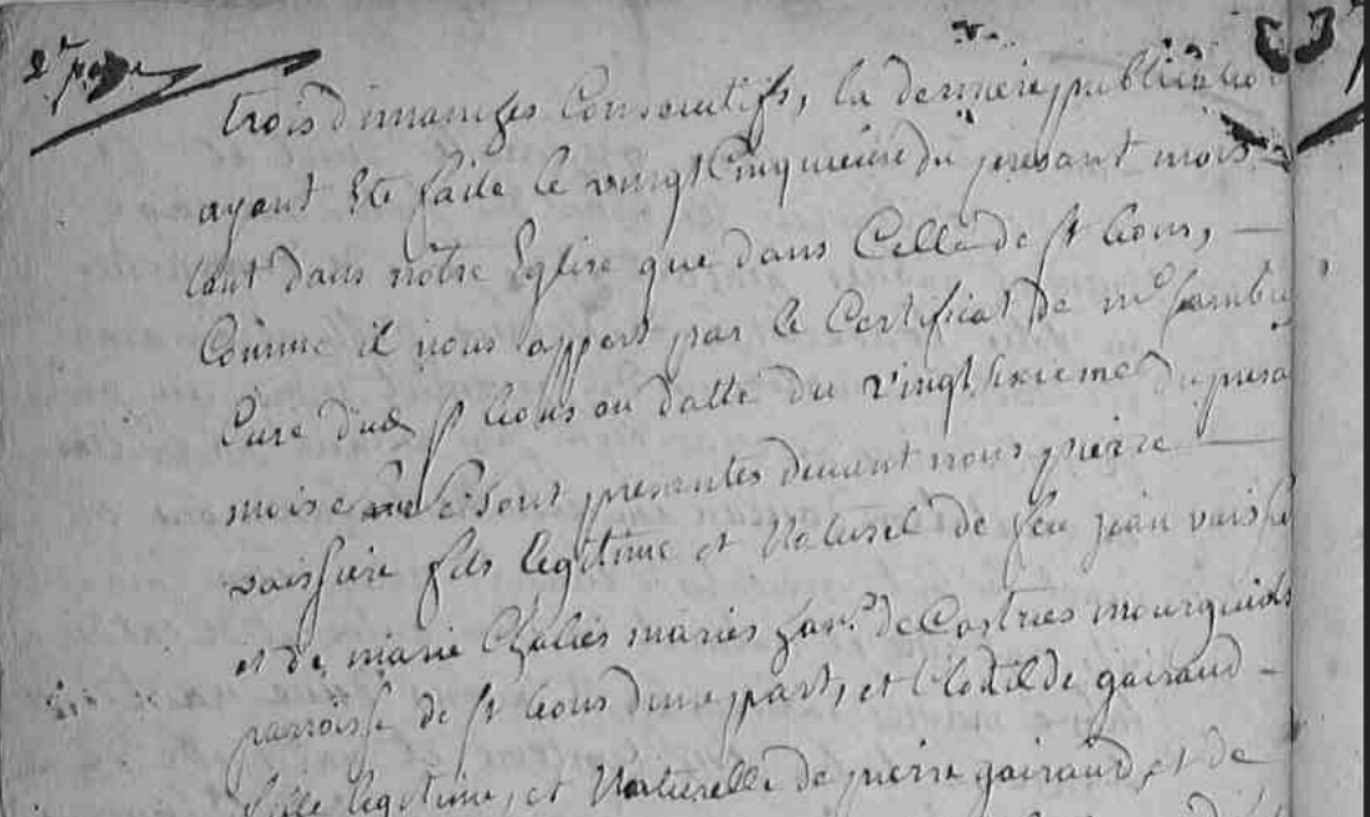 2e page
trois dimanches Consecutifs, la derniere publicatio
ayant Eté faite le vingt Cinquieme du presant mois
tant dans notre Eglise que dans Celle de st lions,
Comme il nous appert par le Certificat de mr
Curé dud st lions en datte du vingt sixieme du presa
mois se sont presentés devant nous pierre
vaissiere fils legitime et Naturel de feu jean vaissie
et de marie Chaliés mariés hans de Castries mourguiols
parroisse de st lions d'une part, et Clotilde gairaud
fille legitime, et Naturelle de pierre gairaud, et de